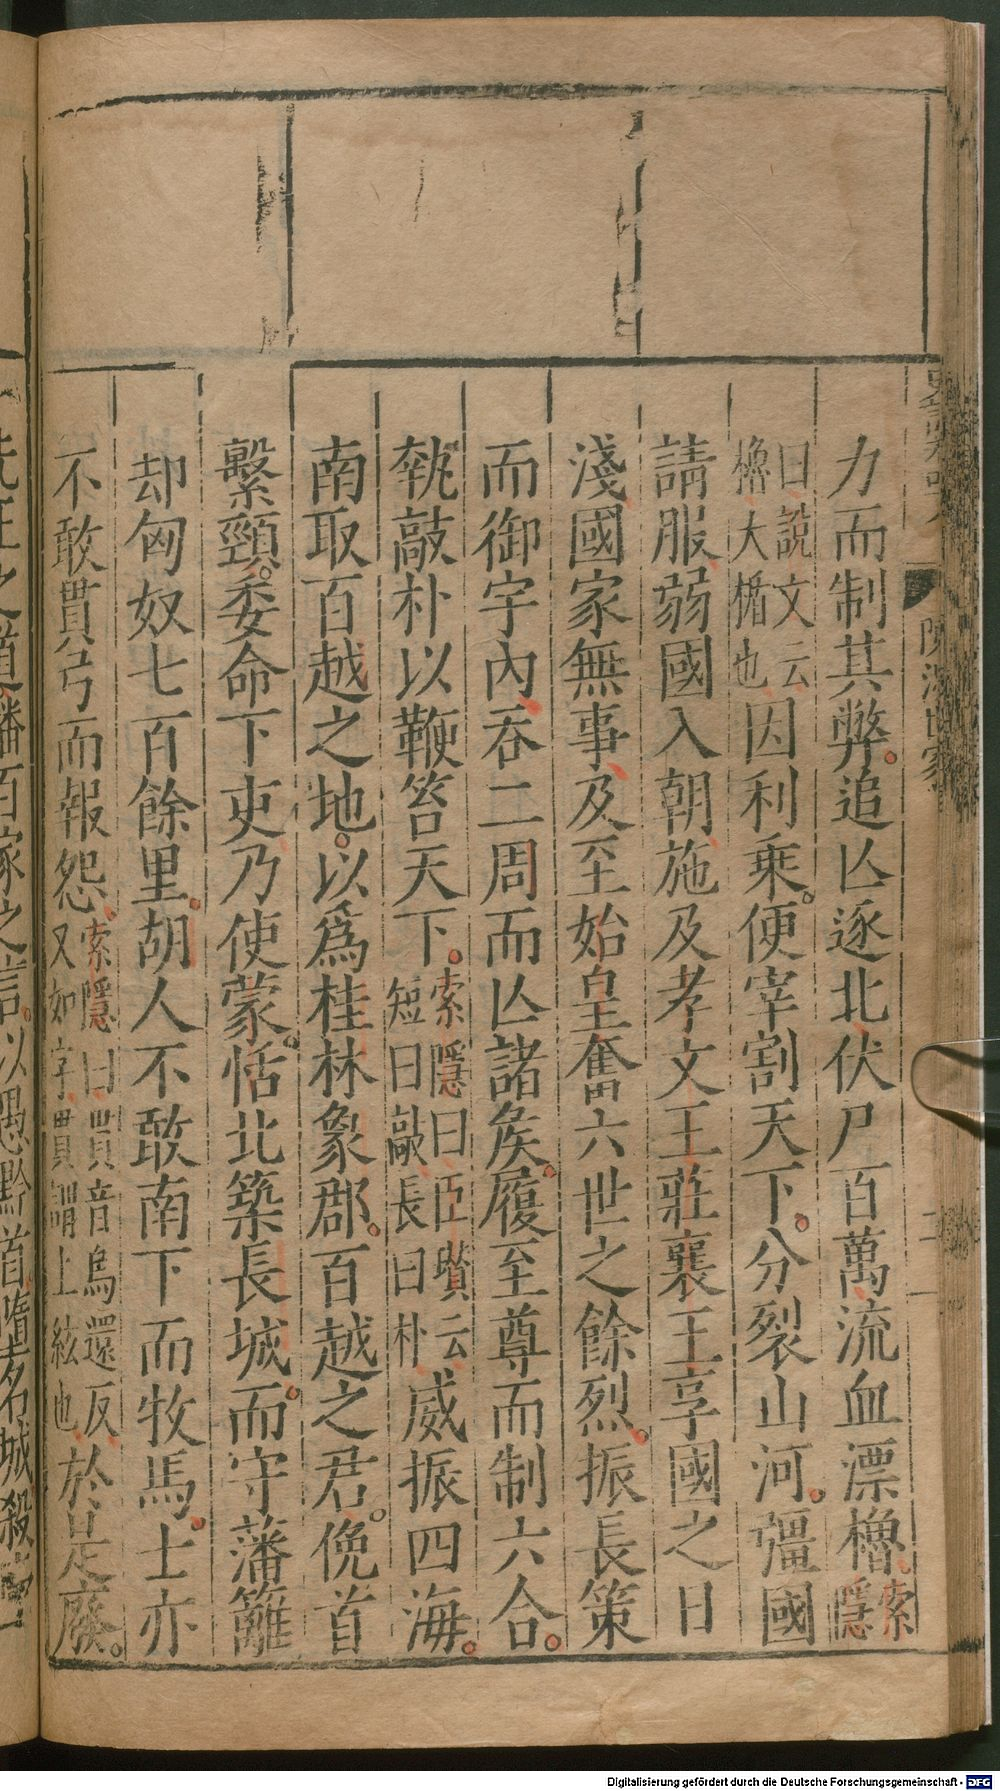 力而制其弊追亾逐北伏尸百萬流血漂櫓索隱
曰說文云櫓大楯也因利乗便宰割天下分裂山河彊國
請服弱國入朝施及孝文王莊襄王享國之日
淺國家無事及至始皇奮六世之餘烈振長策
而御宇內吞二周而亾諸矦履至尊而制六合
執敲朴以鞭笞天下索隱曰臣瓚云短曰敲長曰朴威振四海
南取百越之地以爲桂林象郡百越之君俛首
繫頸委命下吏乃使蒙恬北築長城而守藩籬
却匈奴七百餘里胡人不敢南下而牧馬士亦
不敢貫弓而報怨索隱曰貫音烏還反又如字貫謂上絃也於是廢
先王之道燔百家之言以愚黔首墮名城殺
陳涉世家
二
Digitalisierung gefördert durch die Deutsche Forschungsgemeinschaft - DFG